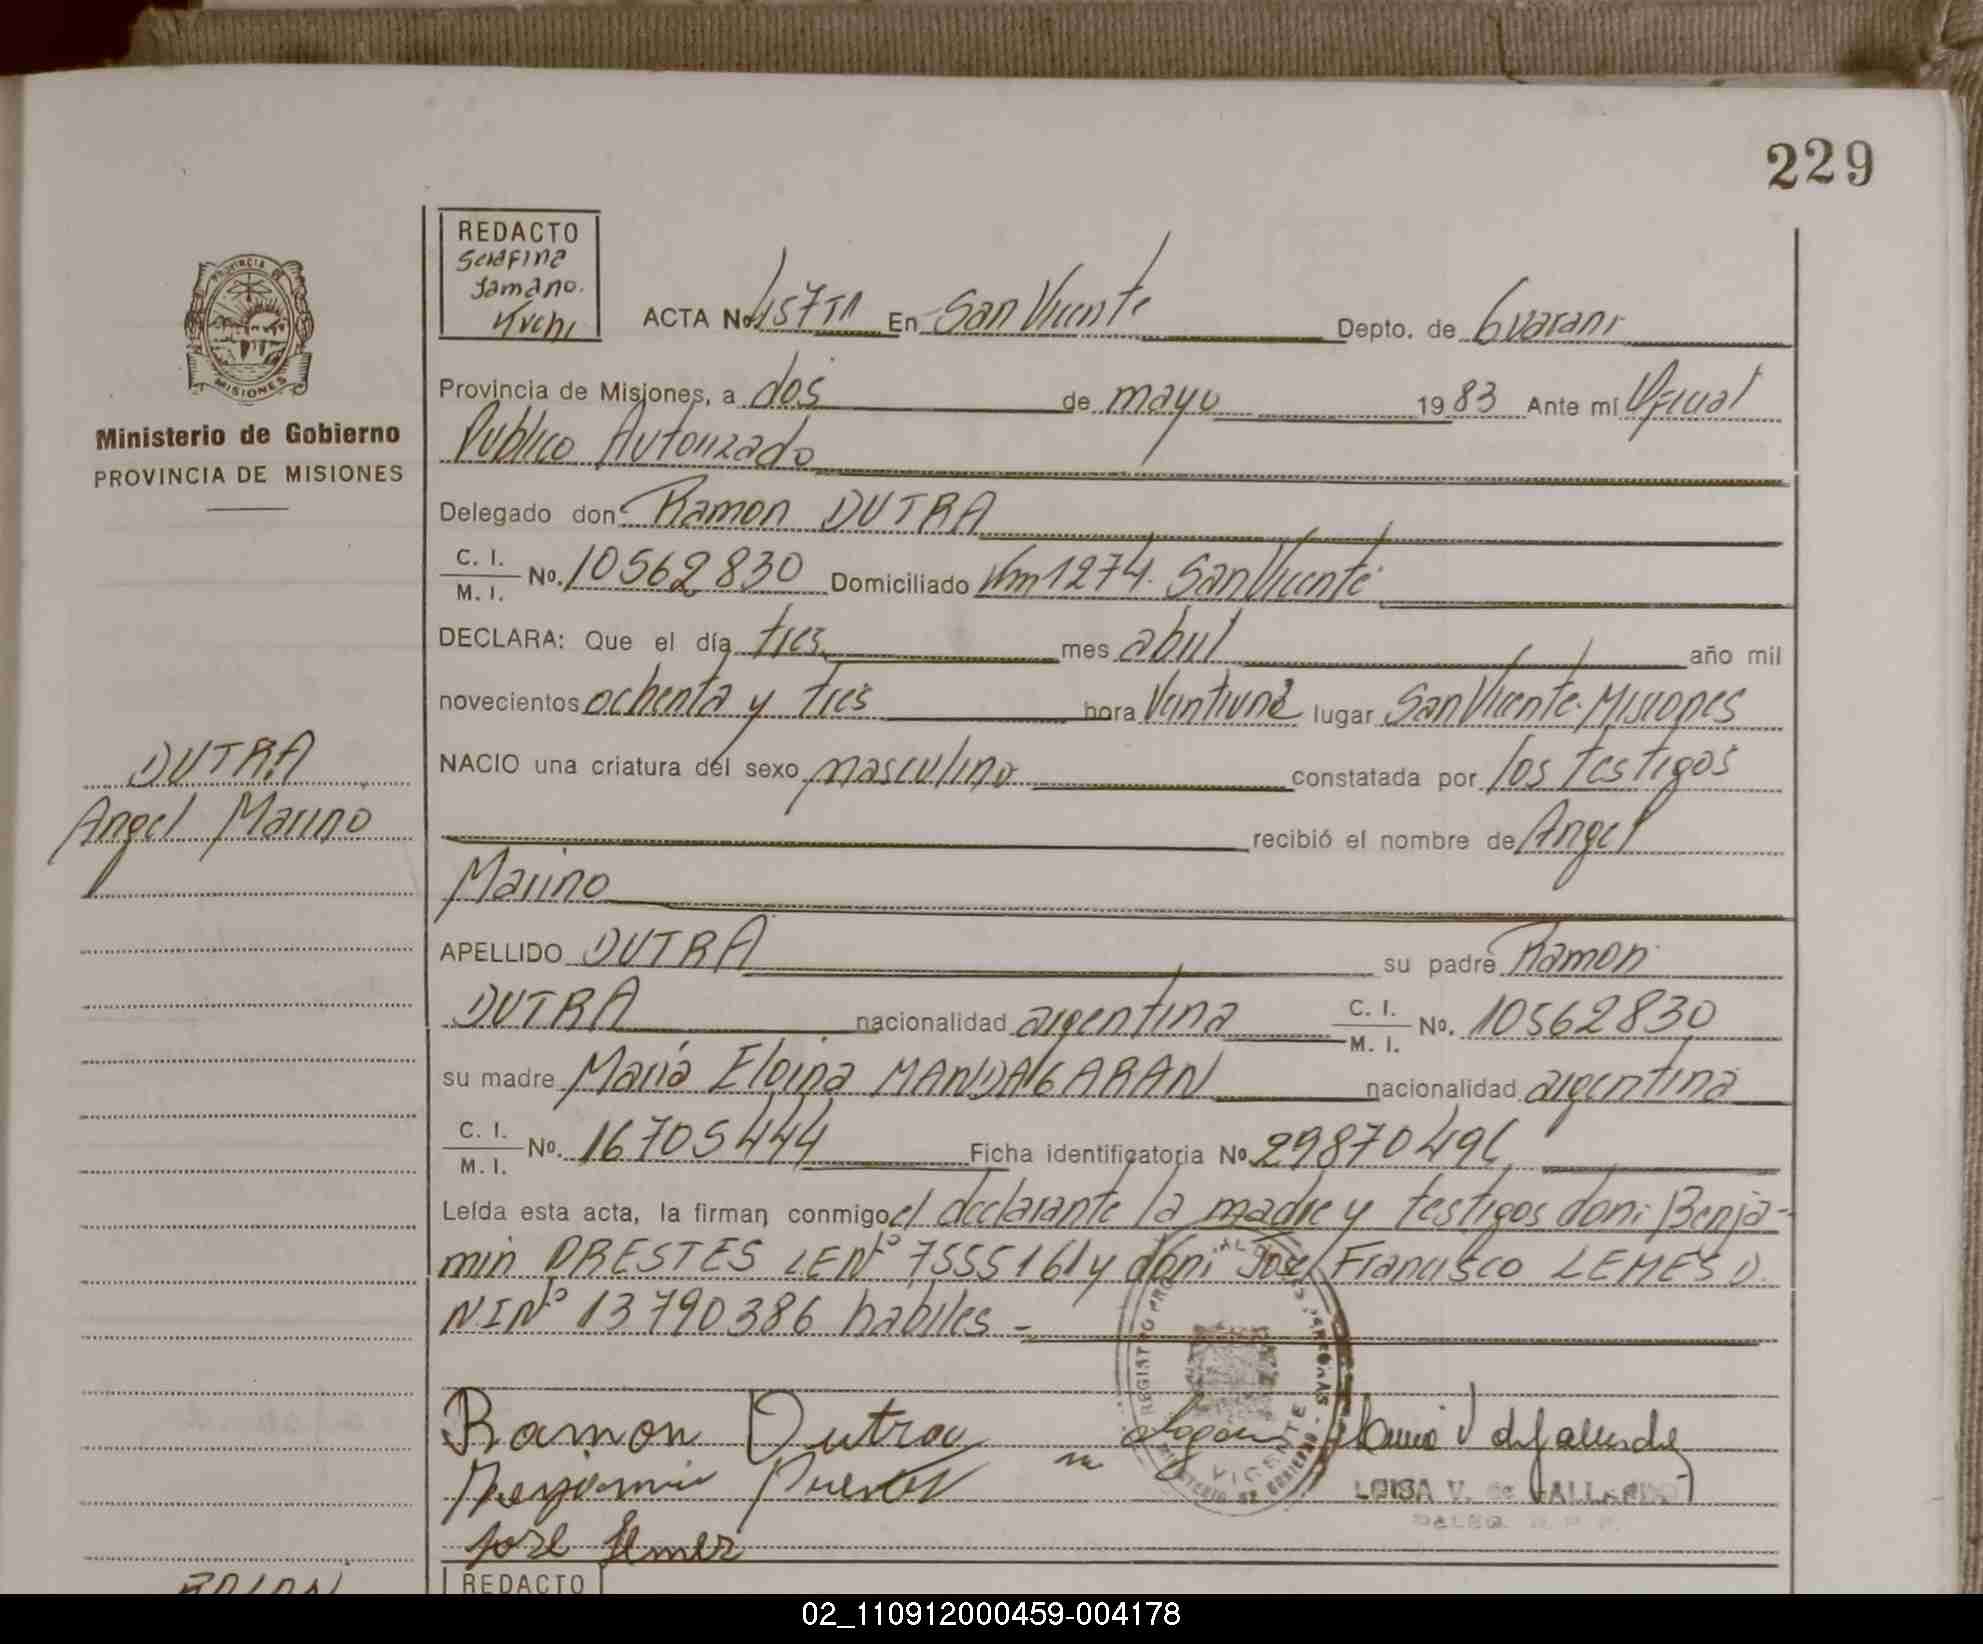 229
REDACTO
Serafina
Tamano.
Kuchi
ACTA No. 457 T1 En San Vicente Depto. de Guarani
Provincia de Misiones, a dos de mayo 1983 Ante mí Oficial
Publico Autorizado
Ministerio de Gobierno
PROVINCIA DE MISIONES
MISIONES
Delegado don Ramon DUTRA
C. I. M. I. No. 10562830 Domiciliado Km 1274. San Vicente
DECLARA: Que el día tres mes abril año mil
novecientos ochenta y tres hora Veintiuna lugar San Vicente. Misiones
DUTRA
Angel Marino
NACIO una criatura del sexo masculino constatada por los testigos
recibió el nombre de Angel
Marino
APELLIDO DUTRA su padre Ramon
DUTRA nacionalidad argentina C. I. M. I. No. 10562830
su madre María Eloina MANDAGARAN nacionalidad argentina
C. I. M. I. No. 16705444 Ficha identificatoria No 29870496
Leída esta acta, la firman conmigo el declarante la madre y testigos don: Benja-
min PRESTES LEN° 7555161 y don: José Francisco LEMES D.
NIN° 13790386 habiles -
Ramon Dutra
Benjamin
José Lemes
VICENTE
LUISA V. de GALLARDO
DELEG. R. P. P.
REDACTO
02_110912000459-004178